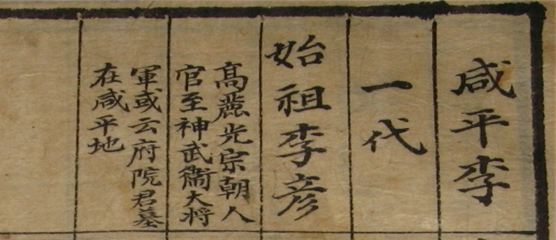 咸平李
一代
始祖李彦
高麗光宗朝人
官至神武衞大将
軍或云府院君墓
在咸平地